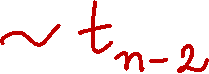 ~ t_{n-2}